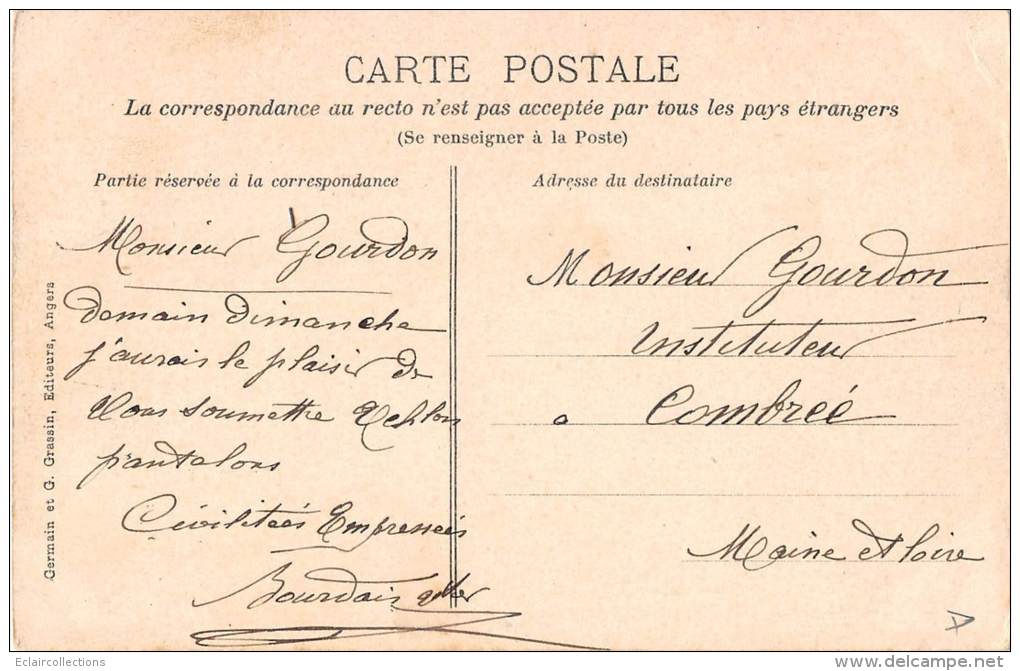 CARTE POSTALE
La correspondance au recto n'est pas acceptée par tous les pays étrangers
(Se renseigner à la Poste)
Partie réservée à la correspondance
Monsieur Gourdon
demain dimanche
j'aurais le plaisir de
Vous soumettre
pantalons
Civilitées Empressées
Bourdais
Adresse du destinataire
Monsieur Gourdon
Instituteur
a Combrée
Maine et loire
Germain et G. Grassin, Editeurs, Angers
Eclaircollections
delcampe.net